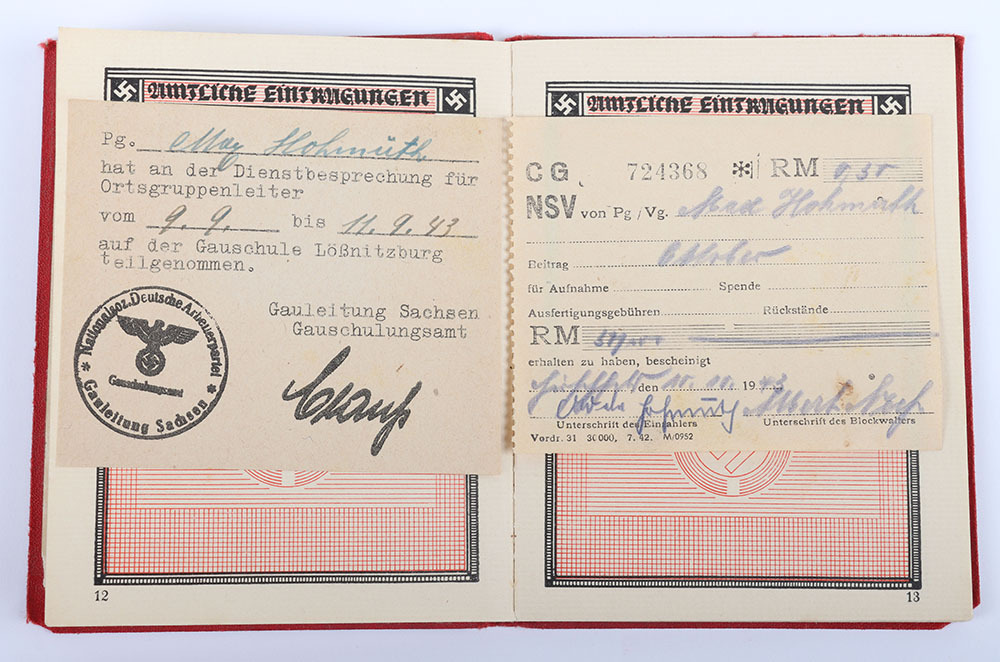 AMTLICHE EINTRAGUNGEN
Pg. Max Hohmuth
hat an der Dienstbesprechung für
Ortsgruppenleiter
vom 9. 9. bis 11. 9. 43
auf der Gauschule Lößnitzburg
teilgenommen.
Gauleitung Sachsen
Gauschulungsamt
Nationalsoz. Deutsche Arbeiterpartei
Gauschulungsamt
* Gauleitung Sachsen *
12
AMTLICHE EINTRAGUNGEN
CG 724368 * RM
NSV von Pg/Vg. Max Hohmuth
Oktober
Beitrag
für Aufnahme Spende
Ausfertigungsgebühren Rückstände
RM
erhalten zu haben, bescheinigt
den 10. 10. 1943
Hohmuth Albert
Unterschrift des Einzahlers Unterschrift des Blockwalters
Vordr. 31 30000, 7. 42. M/0952
13